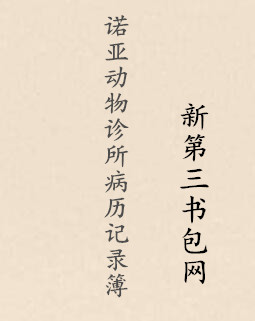 诺亚动物诊所病历记录簿
新第三书包网